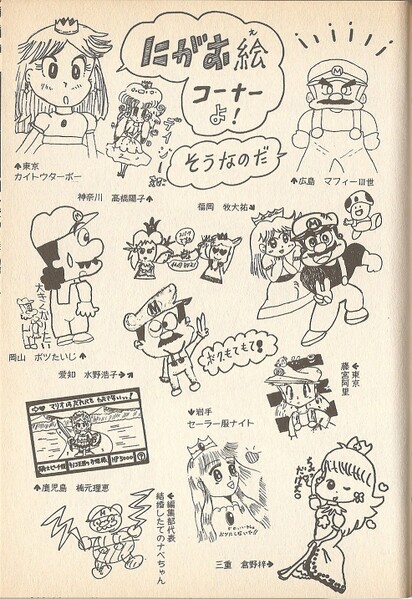 にがむ絵
え
コーナー
よ！
そうなのだ
↑東京
カイトウターボー
神奈川　高橋陽子↑
↑広島　マフィーIII世
福岡　牧大祐↓
大きくなりたい
岡山　ボツたいじ↑
愛知　水野浩子↗
←東京
藤宮阿里
↓岩手
セーラー服ナイト
↑鹿児島　楠元理恵
←編集部代表
結婚したてのナベちゃん
三重　倉野梓→
M